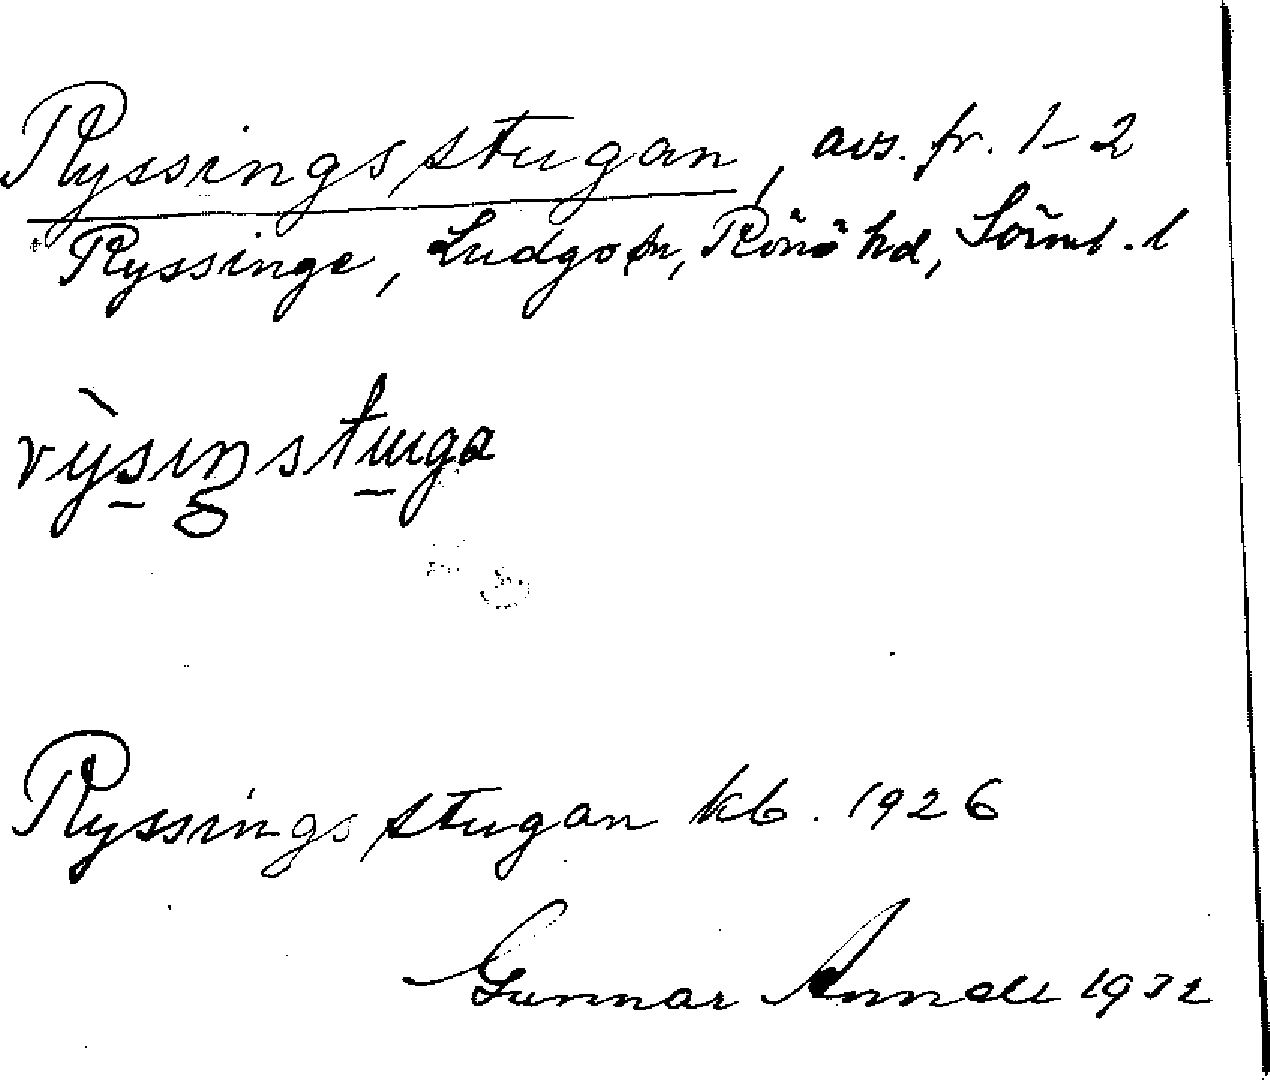 Ryssingsstugan, avs. fr. 1-2
Ryssinge, Ludgo sn, Rönö hd, Sörml. l
rỳsiŋstuga
Ryssingsstugan kb. 1926
Gunnar 1932